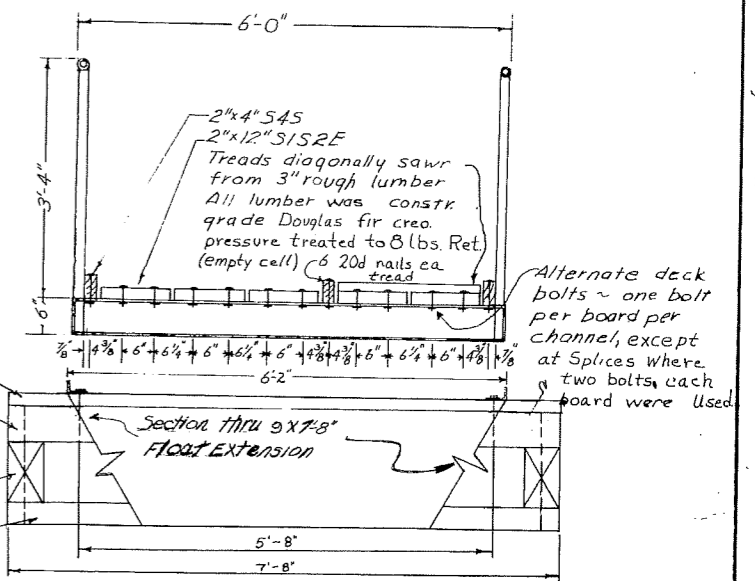 6'-0"
2"x4" S4S
2"x12" S1S2E
Treads diagonally sawr
from 3" rough lumber
All lumber was constr.
grade Douglas fir creo.
pressure treated to 8 lbs. Ret.
(empty cell) 6 20d nails ea
tread
3'-4"
6"
Alternate deck
bolts ~ one bolt
per board per
channel, except
at Splices where
two bolts, each
board were Used
7/8" 4 3/8" 6" 6 1/4" 6" 6 1/4" 6" 4 3/8" 4 3/8" 6" 6 1/4" 6" 4 3/8" 7/8"
6'-2"
Section thru 9 x 7'-8"
Float Extension
5'-8"
7'-8"